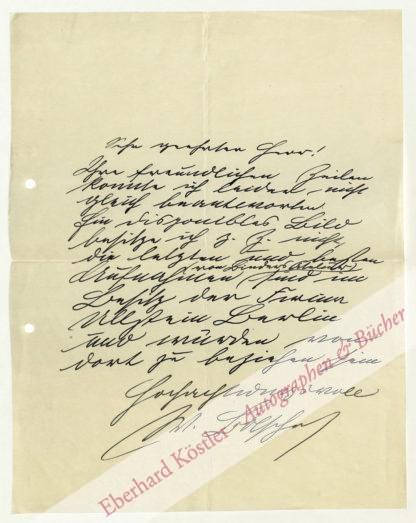 Sehr geehrter Herr!
Ihre freundlichen Zeilen
konnte ich leider nicht
gleich beantworten.
Ein disponibles Bild
besitze ich z. Z. nicht,
die letzten und besten
(von Binders Atelier)
Aufnahmen sind im
Besitz der Firma
Ullstein Berlin
und würden von
dort zu beziehen sein
Hochachtungsvoll
W.
Eberhard Köstler Autographen & Bücher